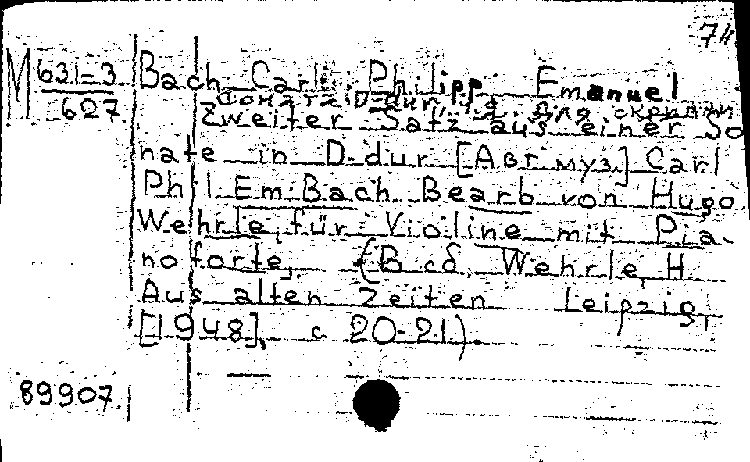 74
M 631-3 Bach Carl Philipp Emanuel
627 Соната D-dur, для скрипки
Zweiter Satz aus einer So
nate in D-dur [Авт муз.] Carl
Phil Em. Bach. Bearb von Hugo
Wehrle für Violine mit Pia-
noforte, (В сб. Wehrle, H
Aus alten Zeiten Leipzig,
[1948], с 20-21).
89907.